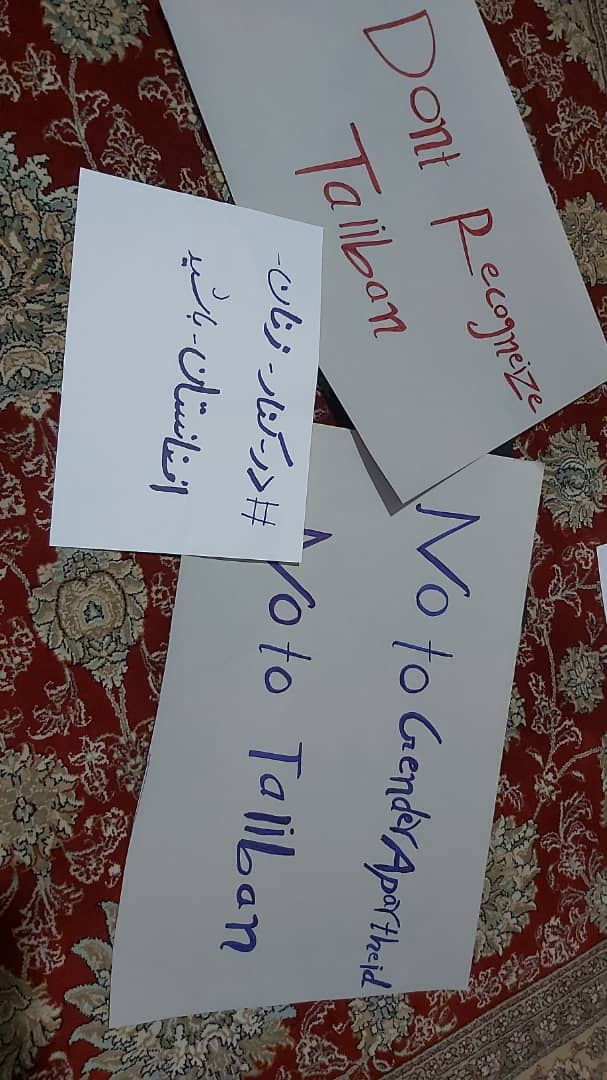 Dont Recogneize
Taliban
#در-کنار-زنان-
افغانستان-باشید
No to Gender Apartheid
No to Taliban